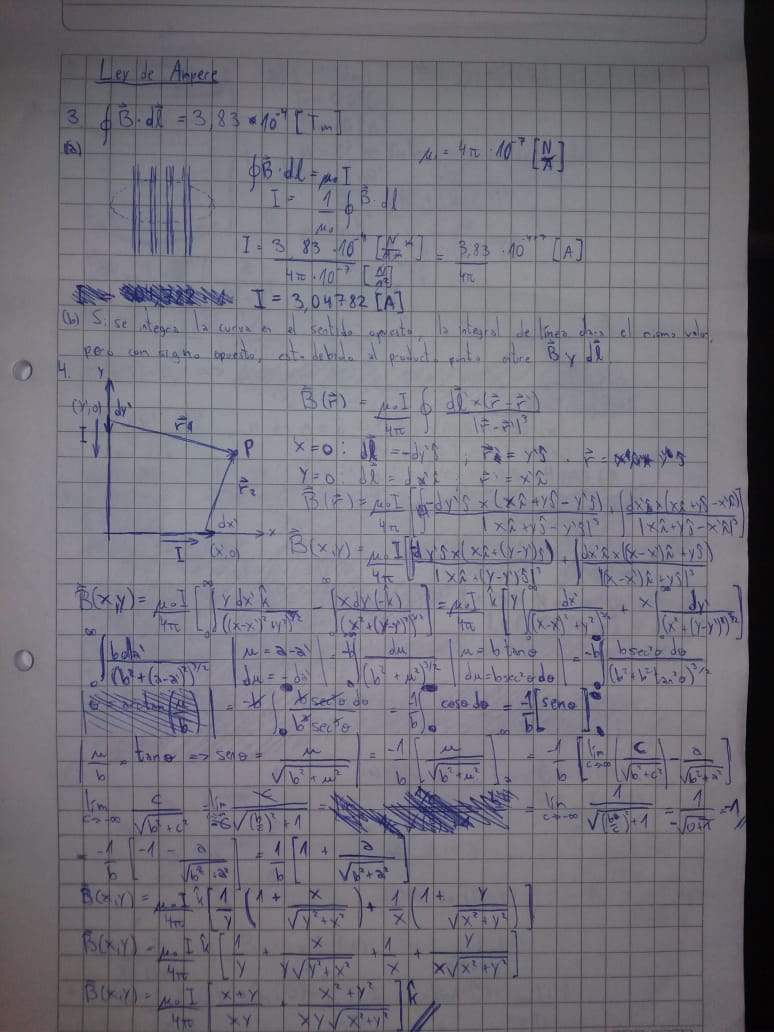 Ley de Ampere
3. ∮ B⃗·dl⃗ = 3,83 · 10⁻⁴ [Tm]
(a) μ₀ = 4π · 10⁻⁷ [N/A²]
∮B⃗·dl = μ₀ I
I = 1/μ₀ ∮ B⃗·dl
I = 3,83·10⁻⁴ [N/Am m] / 4π·10⁻⁷ [N/A²] = 3,83/4π · 10⁻⁴⁺⁷ [A]
I = 3,04782 [A]
(b) Si se integra la curva en el sentido opuesto, la integral de línea dara el mismo valor,
pero con signo opuesto, esto debido al producto punto entre B⃗ y dl⃗.
4. Y
(Y',0) dy' r⃗₁ P
I
r⃗₂
dx' x
I (x',0)
B⃗(r⃗) = μ₀I/4π ∮ dl⃗'×(r⃗-r⃗')/|r⃗-r⃗'|³
X=0: dl⃗ = -dy'ŷ ; r⃗' = y'ŷ
Y=0: dl⃗ = dx'x̂ r⃗' = x'x̂
B⃗(r⃗) = μ₀I/4π [∫ -dy'ŷ×(xx̂+yŷ-y'ŷ)/|xx̂+yŷ-y'ŷ|³ + ∫ dx'x̂×(xx̂+yŷ-x'x̂)/|xx̂+yŷ-x'x̂|³]
B⃗(x,y) = μ₀I/4π [∫ dy'ŷ×(xx̂+(y-y')ŷ)/|xx̂+(y-y')ŷ|³ + ∫ dx'x̂×((x-x')x̂+yŷ)/|(x-x')x̂+yŷ|³]
B⃗(x,y) = μ₀I/4π [∫₀^∞ y dx' k̂/((x-x')²+y²)^3/2 - ∫₀^∞ x dy'(-k̂)/(x²+(y-y')²)^3/2] = μ₀I/4π k̂ [y∫₀^∞ dx'/((x-x')²+y²)^3/2 + x∫₀^∞ dy'/(x²+(y-y')²)^3/2]
∫₀^∞ b da'/(b²+(a-a')²)^3/2 | μ = a-a' dμ = -da' | = -b∫ dμ/(b²+μ²)^3/2 | μ = b tanθ dμ = b sec²θ dθ | = -b∫ b sec²θ dθ/(b²+b²tan²θ)^3/2
= -b∫ b sec²θ dθ/b³sec³θ = -1/b ∫ cosθ dθ = -1/b [senθ]
| μ/b = tanθ => senθ = μ/√(b²+μ²) | = -1/b [μ/√(b²+μ²)]ₐ = -1/b [lim c→-∞ (c/√(b²+c²)) - a/√(b²+a²)]
lim c→-∞ c/√(b²+c²) = lim c→-∞ c/c√((b/c)²+1) = lim c→-∞ 1/√((b/c)²+1) = 1/-√(0+1) = -1
= -1/b [-1 - a/√(b²+a²)] = 1/b [1 + a/√(b²+a²)]
B⃗(x,y) = μ₀I/4π k̂ [1/y (1 + x/√(y²+x²)) + 1/x (1 + y/√(x²+y²))]
B⃗(x,y) = μ₀I/4π k̂ [1/y + x/y√(y²+x²) + 1/x + y/x√(x²+y²)]
B⃗(x,y) = μ₀I/4π [x+y/xy + x²+y²/xy√(x²+y²)] k̂